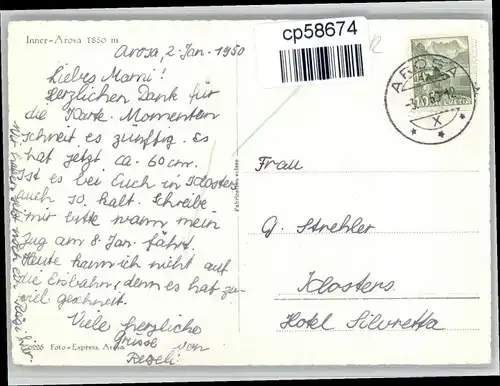 Inner-Arosa 1850 m
cp58674
Arosa, 2. Jan. 1950
Liebes Mami!
Herzlichen Dank für
die Karte. Momentan
schneit es zünftig. Es
hat jetzt ca. 60 cm.
Ist es bei Euch in Klosters
auch so kalt. Schreibe
mir bitte wann mein
Zug am 8. Jan. fährt.
Heute kann ich nicht auf
die Eisbahn, denn es hat zu-
viel geschneit.
Viele herzliche
Grüsse von
Fabrikzeichen
Foto-Express, Arosa
AROSA
HELVETIA
X
Frau
G. Strehler
Klosters
Hotel Silvretta